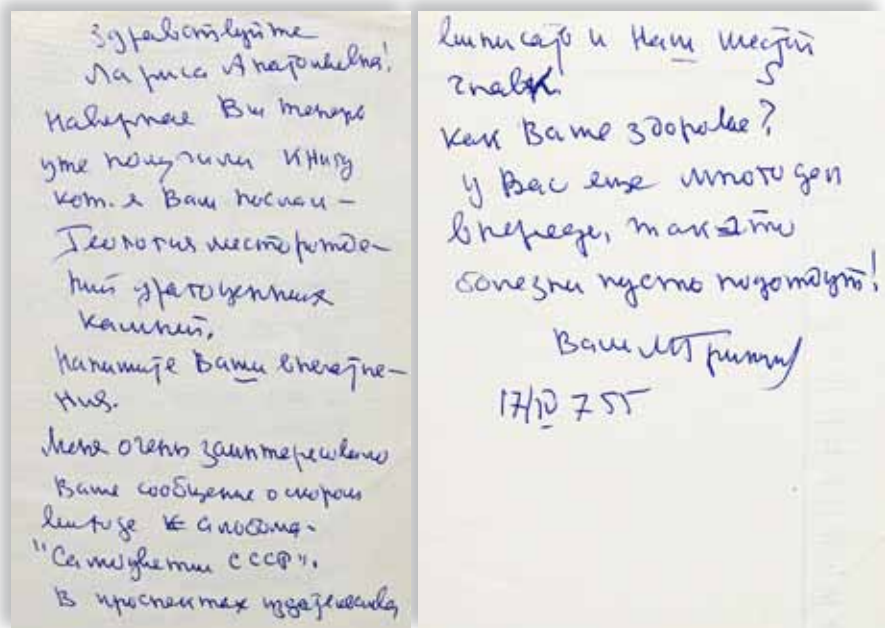 Здравствуйте
Лариса Анатольевна!
Наверное Вы теперь
уже получили книгу
кот. я Вам послал –
Геология месторожде-
ний драгоценных
камней.
Напишите Ваши впечатле-
ния.
Меня очень заинтересовало
Ваше сообщение о скором
выходе альбома
"Самоцветы СССР".
В проспектах издательства,
и наш
как Ваше здоровье?
у Вас еще много дел
впереди, так что
болезни пусть подождут!
Ваш